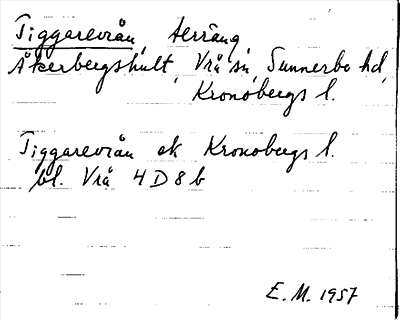 Tiggarevrån, terräng,
Åkerbergshult, Vrå sn, Sunnerbo hd,
Kronobergs l.
Tiggarevrån ek Kronobergs l.
bl. Vrå 4 D 8 b
E. M. 1957